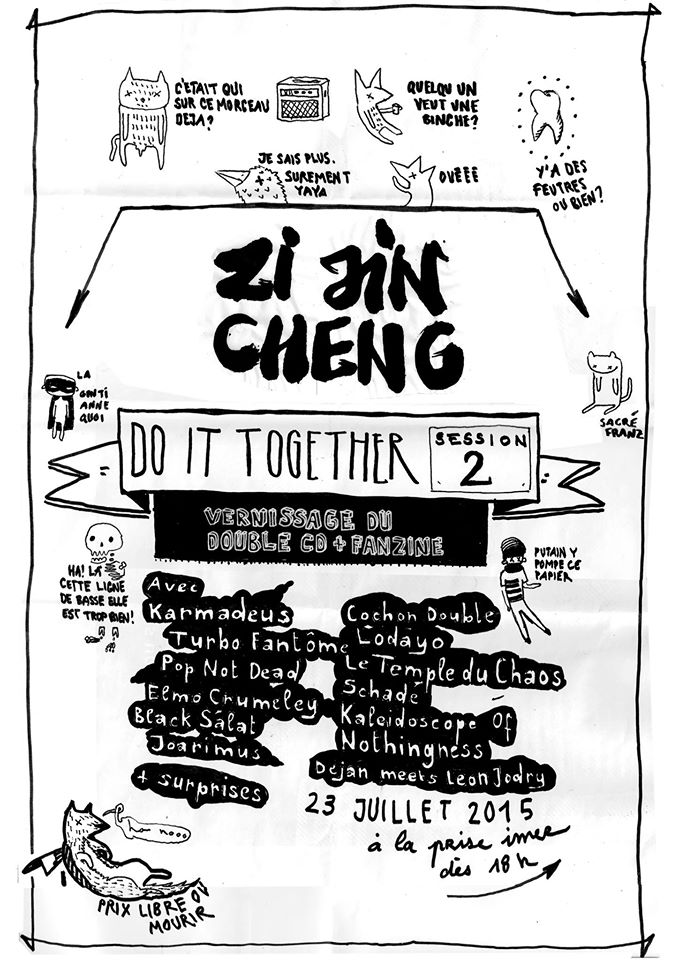 C'ÉTAIT QUI
SUR CE MORCEAU
DEJA?
QUELQU'UN
VEUT UNE
BINCHE?
JE SAIS PLUS.
SUREMENT
YAYA
OUÉÉÉ
Y'A DES
FEUTRES
OU BIEN?
ZI JIN
CHENG
LA
GENTI
ANNE
QUOI
SACRÉ
FRANZ
DO IT TOGETHER
SESSION
2
VERNISSAGE DU
DOUBLE CD + FANZINE
HA! LÀ
CETTE LIGNE
DE BASSE ELLE
EST TROP BIEN!
PUTAIN Y
POMPE CE
PAPIER
Avec
Karmadeus
Turbo Fantôme
Pop Not Dead
Elmo Crumeley
Black Sàlat
Joarimus
+ surprises
Cochon Double
Lodayo
Le Temple du Chaos
Schadé
Kaleidoscope Of
Nothingness
Dejan meets Léon Jodry
23 JUILLET 2015
à la prise imer
dès 18h
ha nooo
PRIX LIBRE OU
MOURIR